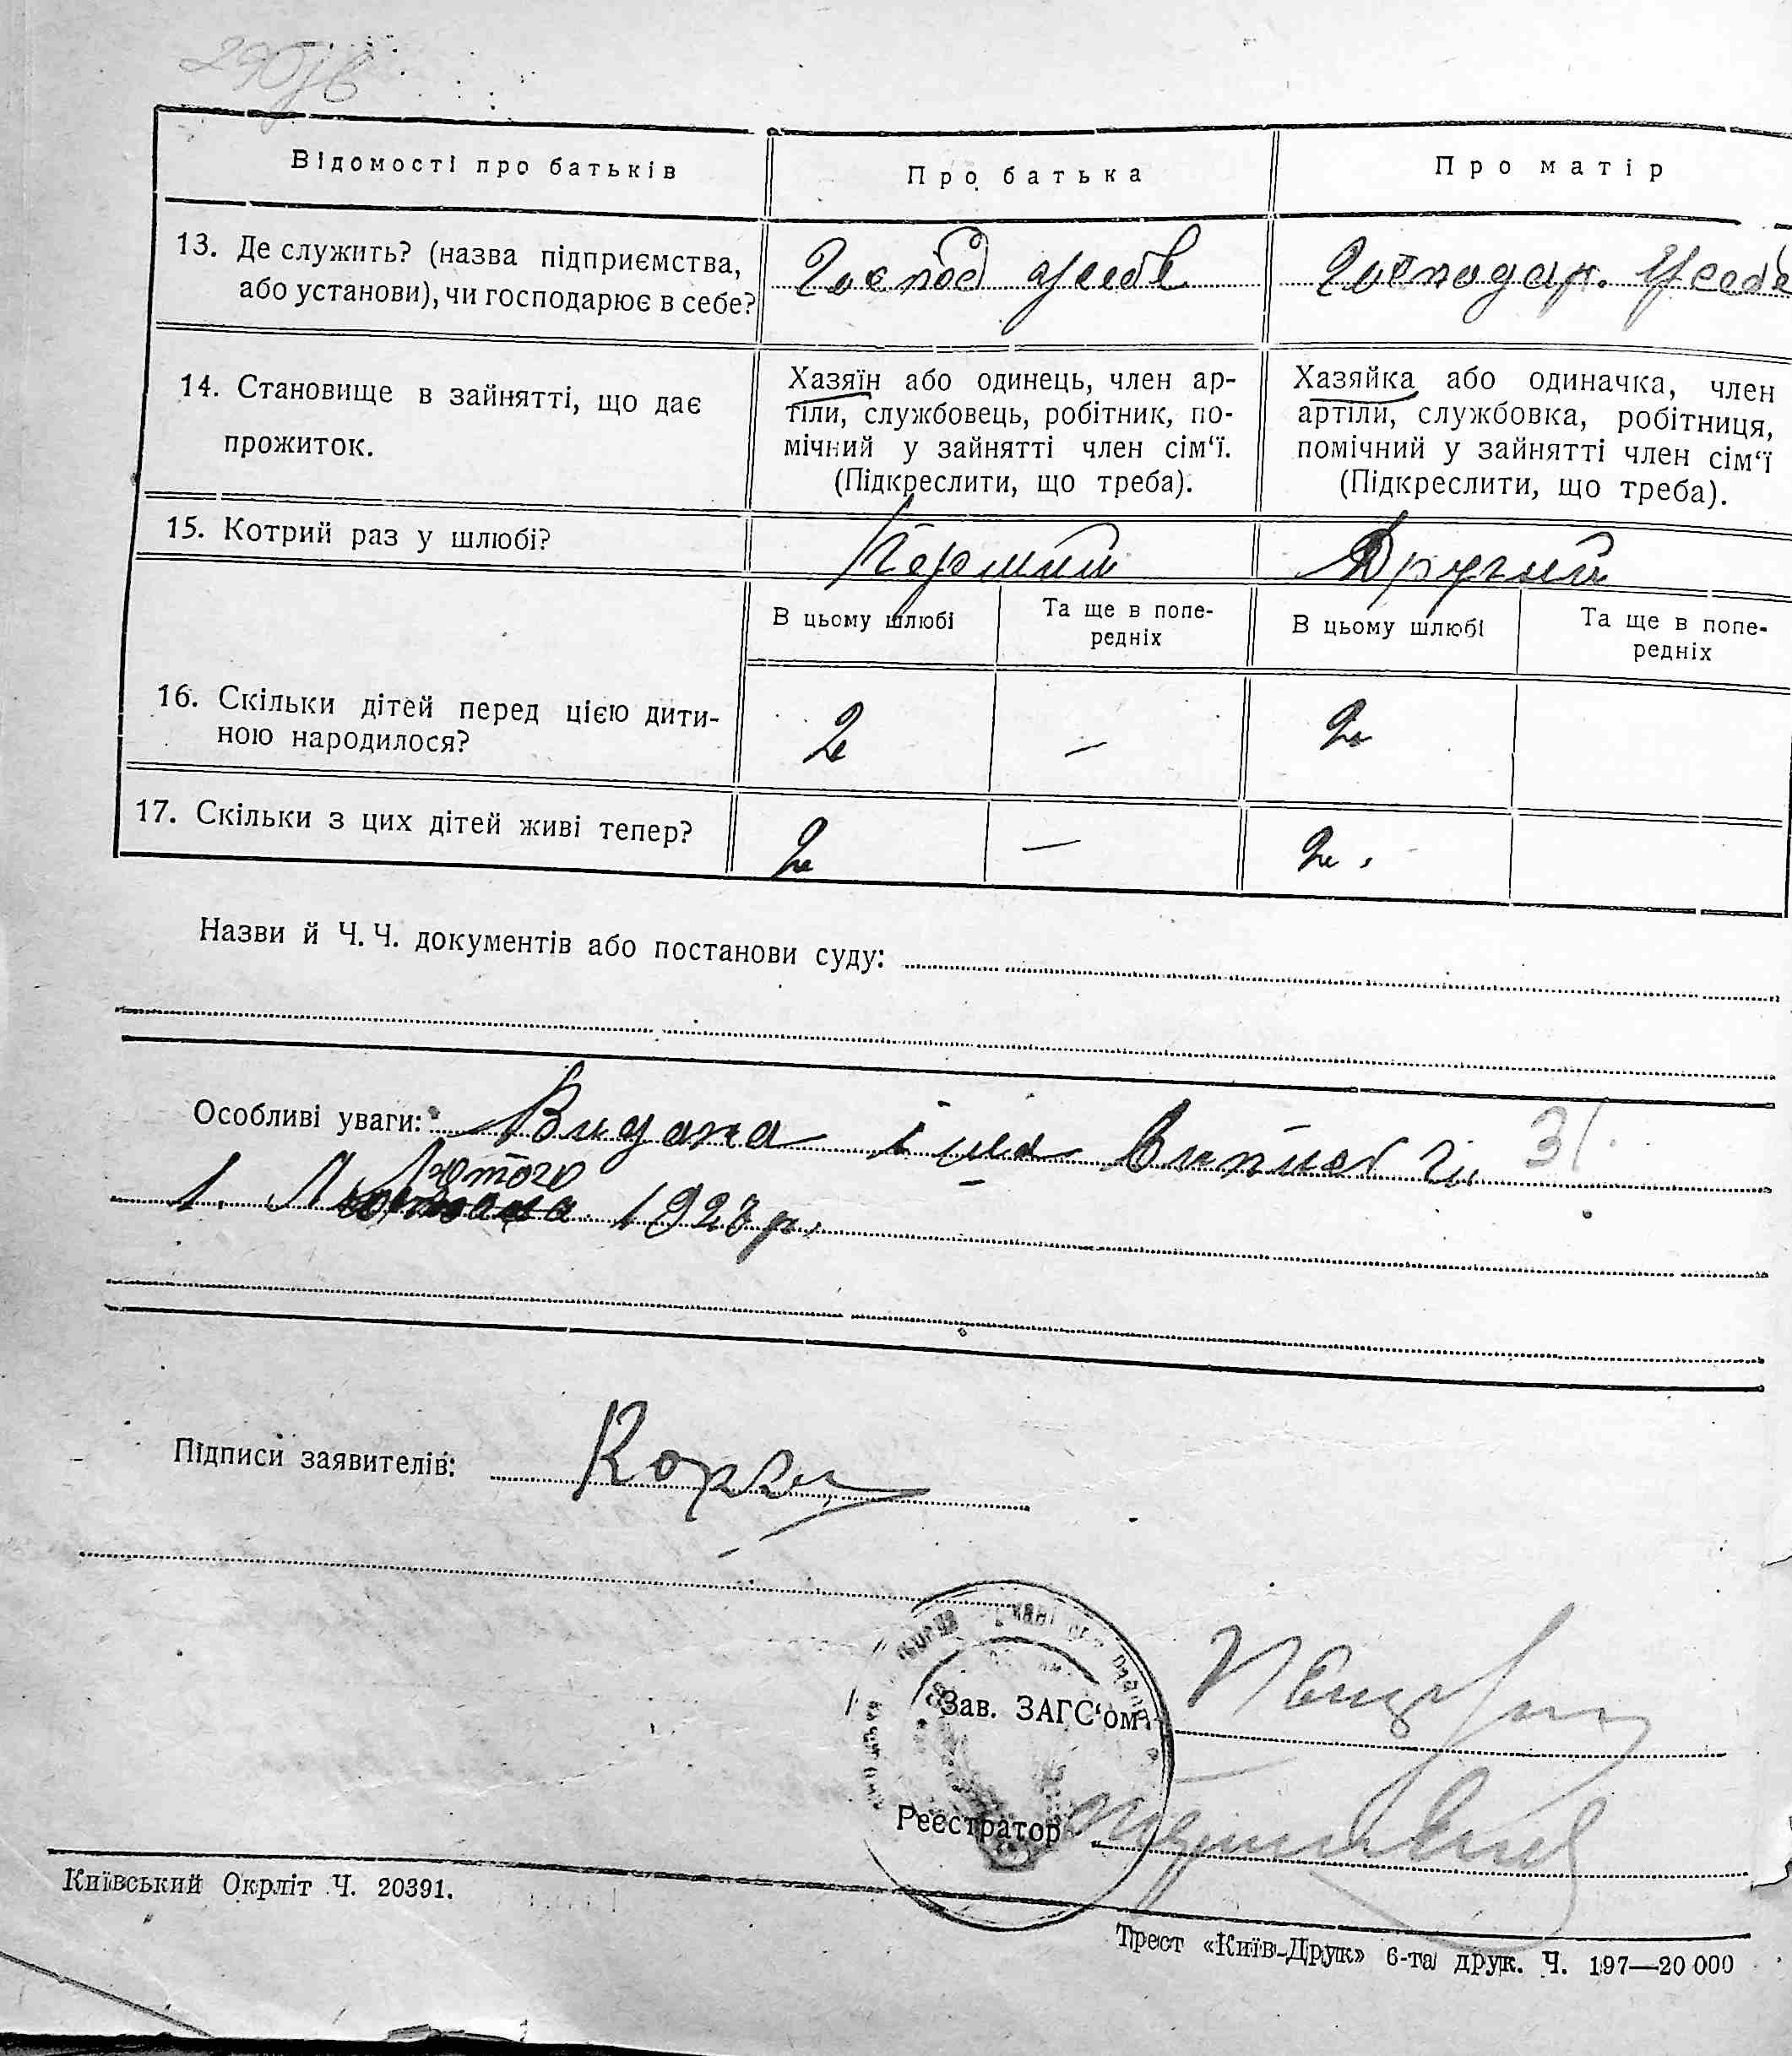 Відомості про батьків
Про батька
Про матір
13. Де служить? (назва підприємства,
або установи), чи господарює в себе?
Господ у себе
Господар. у себе
14. Становище в зайнятті, що дає
прожиток.
Хазяїн або одинець, член ар-
тіли, службовець, робітник, по-
мічний у зайнятті член сім‘ї.
(Підкреслити, що треба).
Хазяйка або одиначка, член
артіли, службовка, робітниця,
помічний у зайнятті член сім‘ї
(Підкреслити, що треба).
15. Котрий раз у шлюбі?
Перший
Другий
В цьому шлюбі
Та ще в попе-
редніх
В цьому шлюбі
Та ще в попе-
редніх
16. Скільки дітей перед цією дити-
ною народилося?
2
—
2
17. Скільки з цих дітей живі тепер?
2
—
2
Назви й Ч. Ч. документів або постанови суду:
Особливі уваги: Видана
31
Лютого
1. 192 р.
Підписи заявителів:
Зав. ЗАГС‘ом
Реєстратор
Київський Окрліт Ч. 20391.
Трест «Київ-Друк» 6-та друк. Ч. 197—20 000